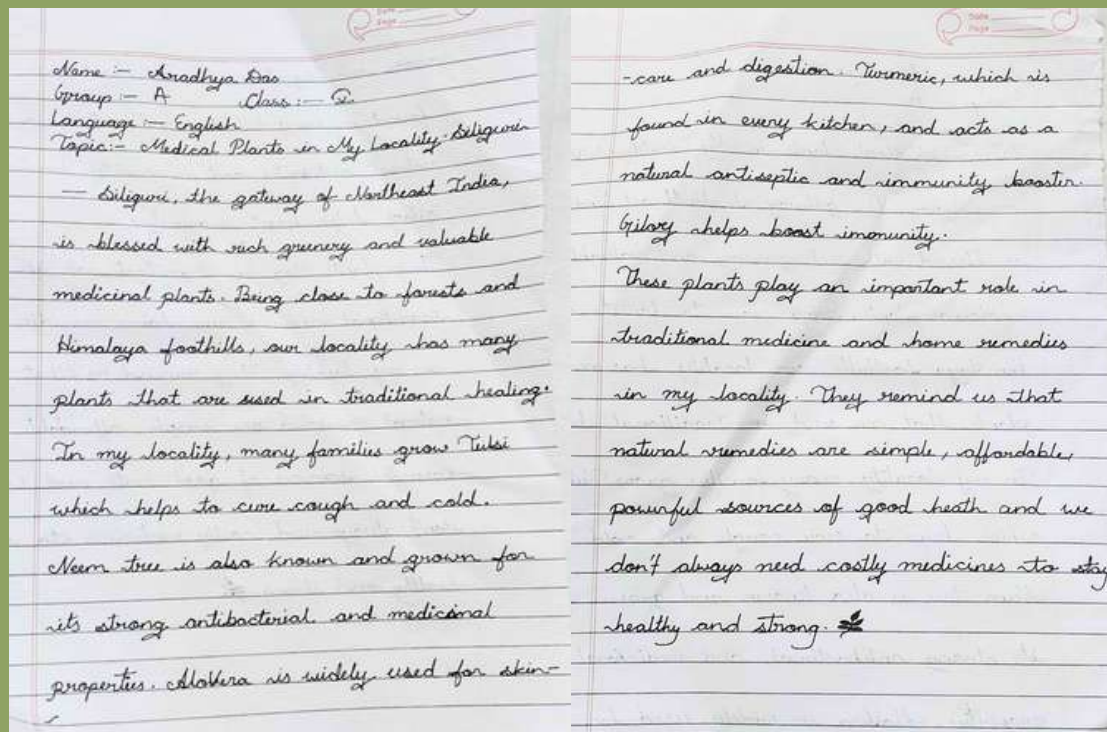 Date
Page
Name :- Aradhya Das
Group :- A Class :- V
Language :- English
Topic:- Medical Plants in My Locality-Siliguri
— Siliguri, the gateway of Northeast India,
is blessed with rich greenery and valuable
medicinal plants. Being close to forests and
Himalaya foothills, our locality has many
plants that are used in traditional healing.
In my locality, many families grow Tulsi
which helps to cure cough and cold.
Neem tree is also known and grown for
its strong antibacterial and medicinal
properties. AloVera is widely used for skin-
Date
Page
-care and digestion. Turmeric, which is
found in every kitchen, and acts as a
natural antiseptic and immunity booster.
Giloy helps boost immunity.
These plants play an important role in
traditional medicine and home remedies
in my locality. They remind us that
natural remedies are simple, affordable,
powerful sources of good heath and we
don't always need costly medicines to stay
healthy and strong.